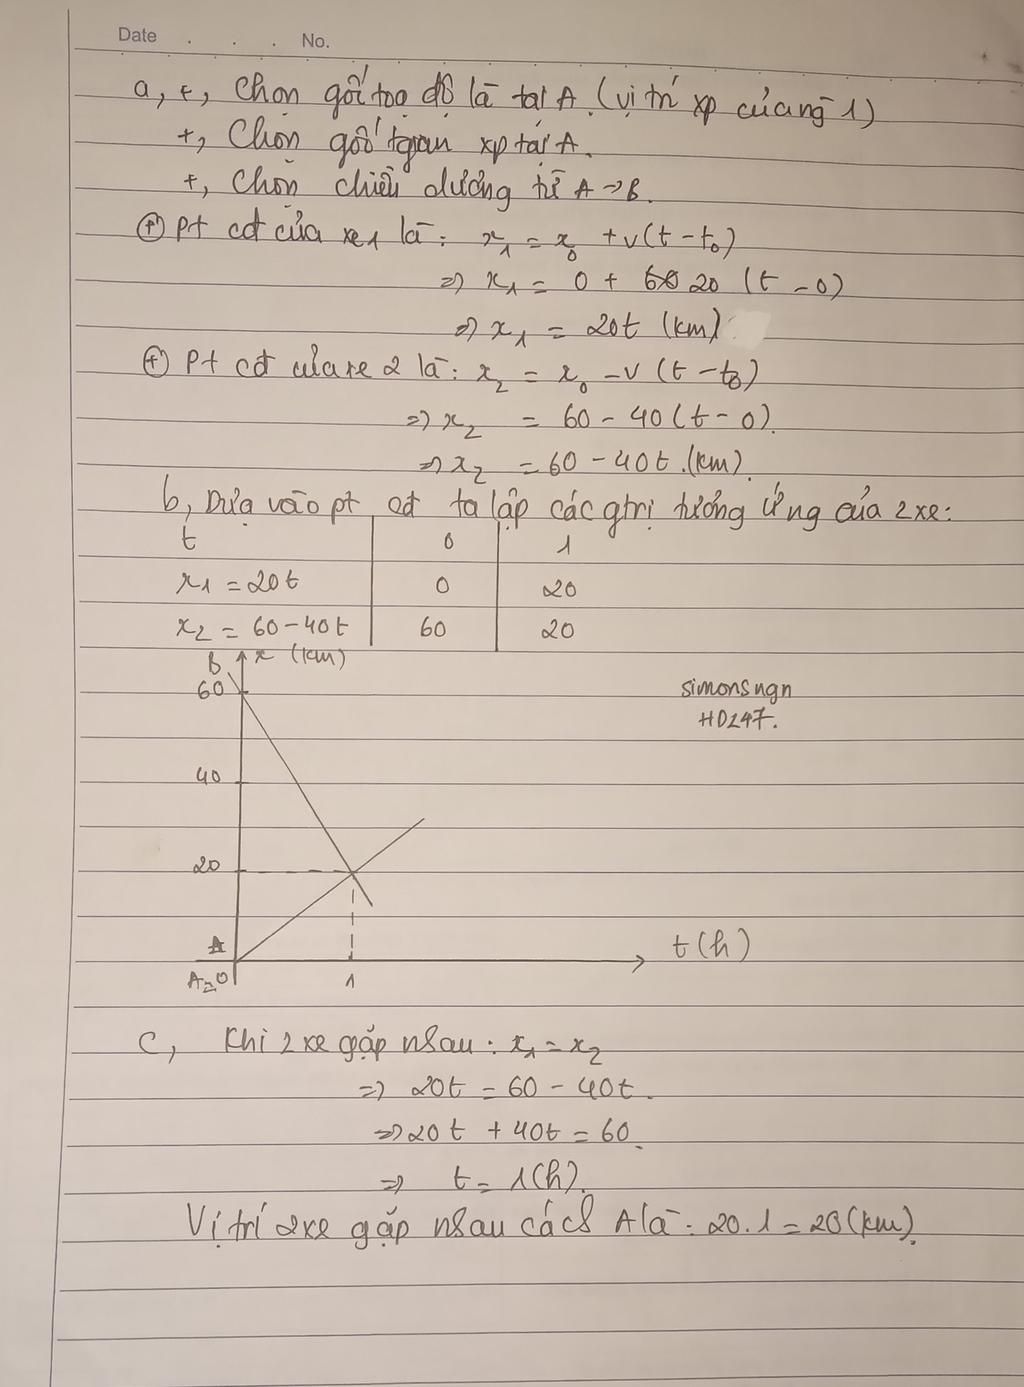 Date . . . No.
a, +, Chọn gốc toạ độ là tại A (vị trí xp của ng 1)
+, Chọn gốc tgian xp tại A.
+, Chọn chiều dương từ A → B.
(+) Pt cđ của xe 1 là: x₁ = x₀ + v(t - t₀)
=> x₁ = 0 + 20 (t - 0)
=> x₁ = 20t (km)
(+) Pt cđ của xe 2 là: x₂ = x₀ - v (t - t₀)
=> x₂ = 60 - 40 (t - 0).
=> x₂ = 60 - 40t. (km).
b, Dựa vào pt cđ ta lập các gtrị tương ứng của 2 xe:
t 0 1
x₁ = 20t 0 20
x₂ = 60 - 40t 60 20
B x (km)
60
simonsngn
HD247.
40
20
A
t (h)
A ≡ 0
1
c, Khi 2 xe gặp nhau: x₁ = x₂
=> 20t = 60 - 40t.
=> 20t + 40t = 60.
=> t = 1 (h).
Vị trí 2 xe gặp nhau cách A là: 20.1 = 20 (km).